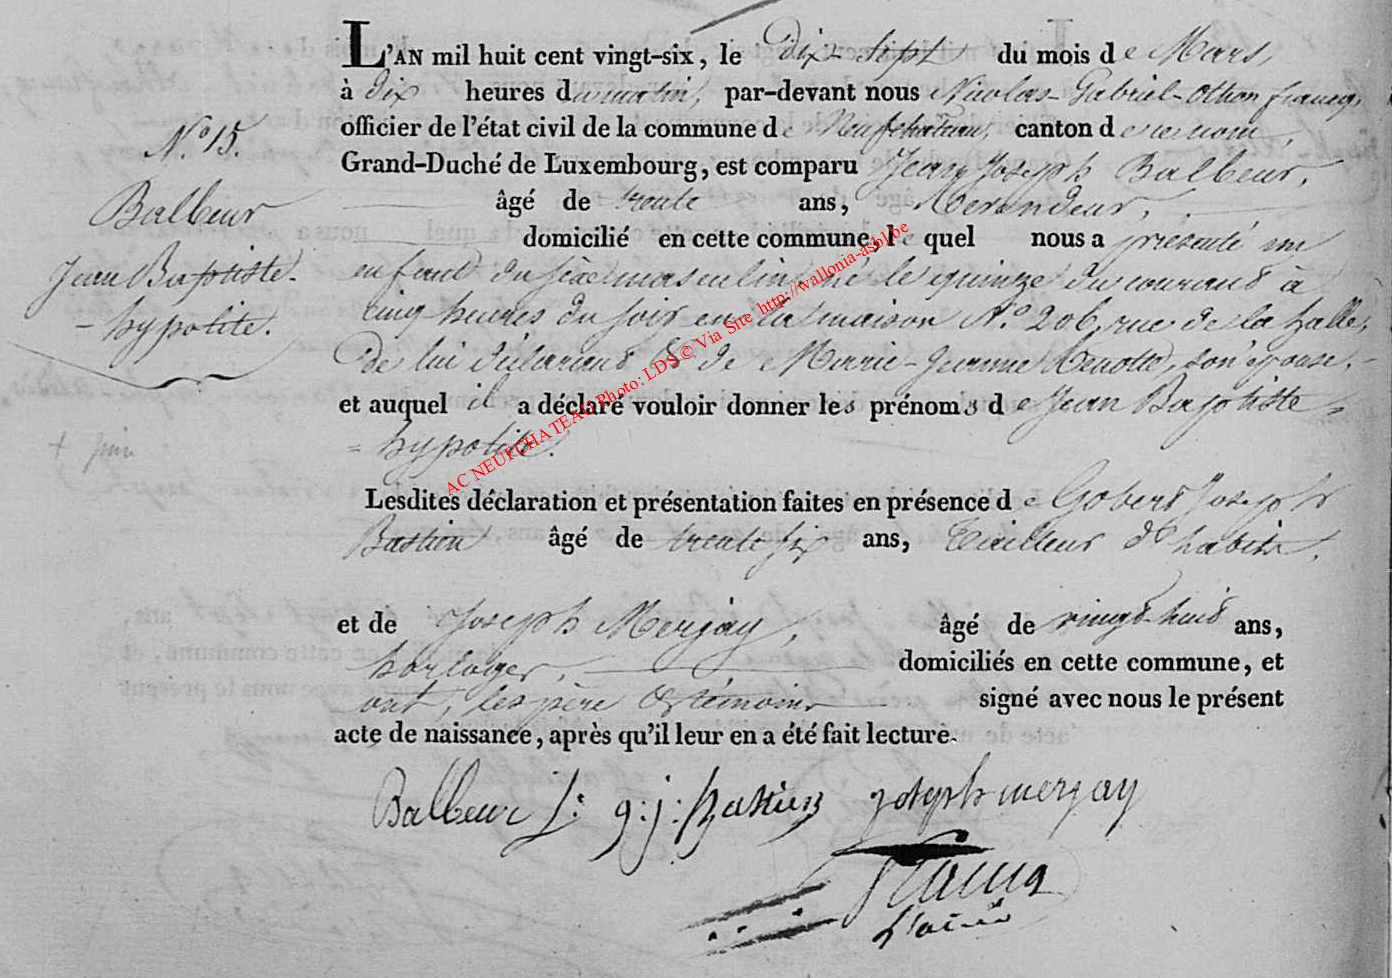 L'AN mil huit cent vingt-six, le dix-sept du mois de Mars,
à dix heures du matin, par-devant nous Nicolas-Gabriel-Othon francq,
officier de l'état civil de la commune de Neufchateau, canton de ce nom
N.° 15.
Grand-Duché de Luxembourg, est comparu Jean Joseph Balbeur,
Balbeur
âgé de trente ans,
domicilié en cette commune, le quel nous a présenté un
Jean Baptiste-
enfant du sèxe masculin, né le quinze du courant à
-hypolite.
cinq heures du soir en sa maison N.° 206, rue de la halle,
de lui déclarant & de Marie-Jeanne son épouse,
et auquel il a déclaré vouloir donner les prénoms de Jean Baptiste-
-hypolite.
Lesdites déclaration et présentation faites en présence de Gobert Joseph
Bastien âgé de trente six ans, tailleur d'habits,
et de Joseph Merjay, âgé de vingt-huit ans,
horloger, domiciliés en cette commune, et
ont, les père & témoins signé avec nous le présent
acte de naissance, après qu'il leur en a été fait lecture.
Balbeur g: j: Bastien joseph merjay
AC NEUFCHATEAU Photo: LDS © Via Site http://wallonia-asbl.be